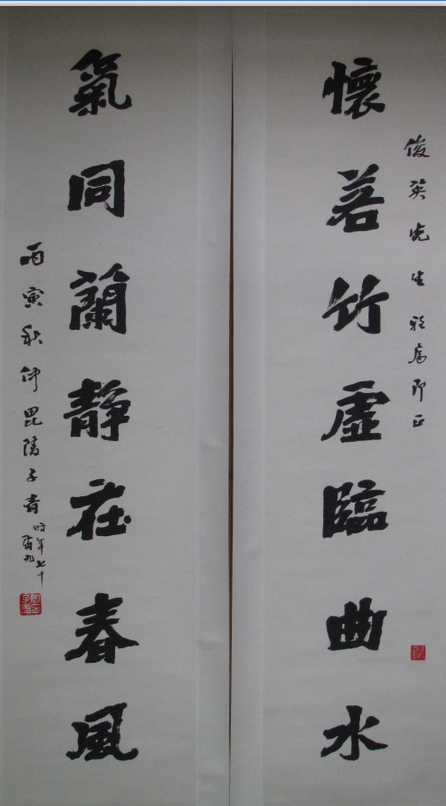 懷若竹虛臨曲水
俊英先生雅屬即正
氣同蘭靜在春風
丙寅秋仲毘陵子青時年七十
有九